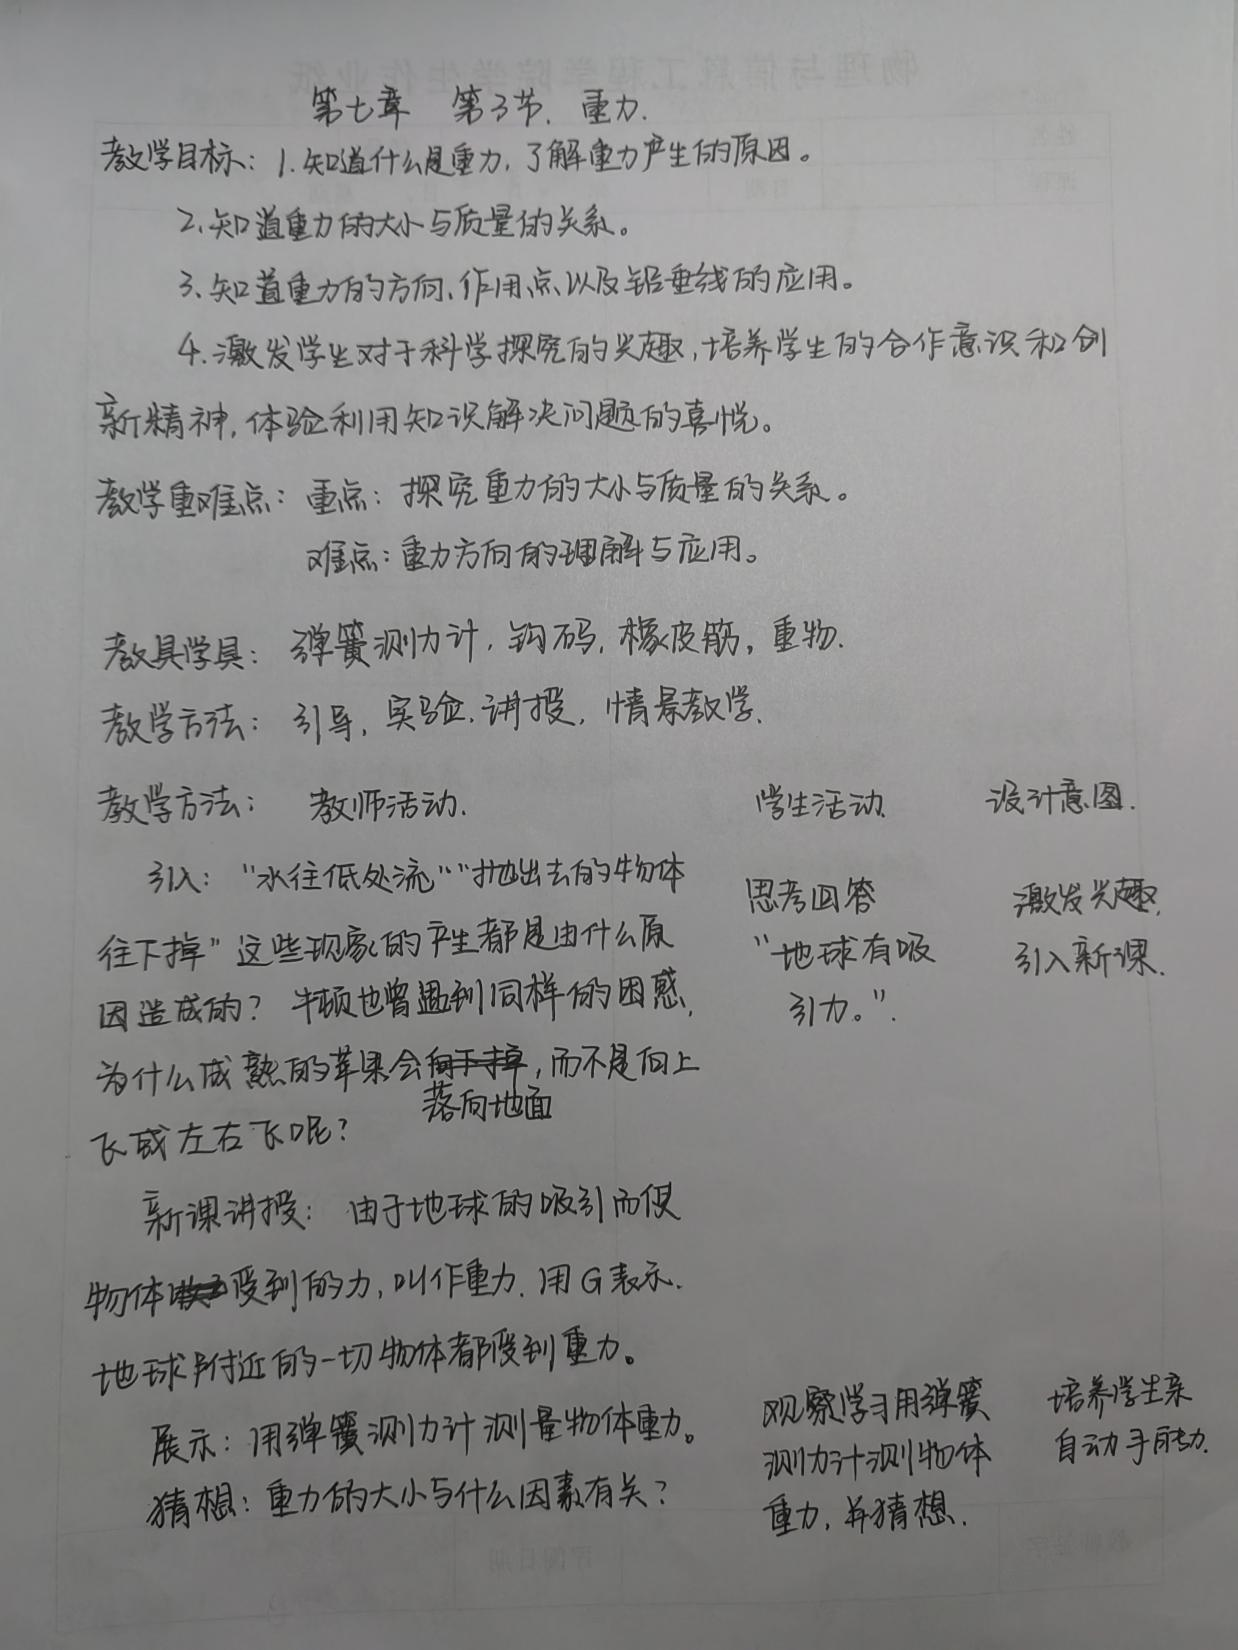 第七章 第3节. 重力.
教学目标: 1. 知道什么是重力, 了解重力产生的原因。
2. 知道重力的大小与质量的关系。
3. 知道重力的方向、作用点以及铅垂线的应用。
4. 激发学生对于科学探究的兴趣, 培养学生的合作意识和创
新精神, 体验利用知识解决问题的喜悦。
教学重难点: 重点: 探究重力的大小与质量的关系。
难点: 重力方向的理解与应用。
教具学具: 弹簧测力计, 钩码, 橡皮筋, 重物.
教学方法: 引导, 实验, 讲授, 情景教学.
教学方法: 教师活动. 学生活动. 设计意图.
引入: "水往低处流" "抛出去的物体 思考回答 激发兴趣,
往下掉" 这些现象的产生都是由什么原 "地球有吸 引入新课.
因造成的? 牛顿也曾遇到同样的困惑, 引力。".
为什么成熟的苹果会向下掉, 而不是向上
落向地面
飞或左右飞呢?
新课讲授: 由于地球的吸引而使
物体受到的力, 叫作重力. 用G表示.
地球附近的一切物体都受到重力。
展示: 用弹簧测力计测量物体重力。 观察学习用弹簧 培养学生亲
猜想: 重力的大小与什么因素有关? 测力计测物体 自动手能力.
重力, 并猜想.